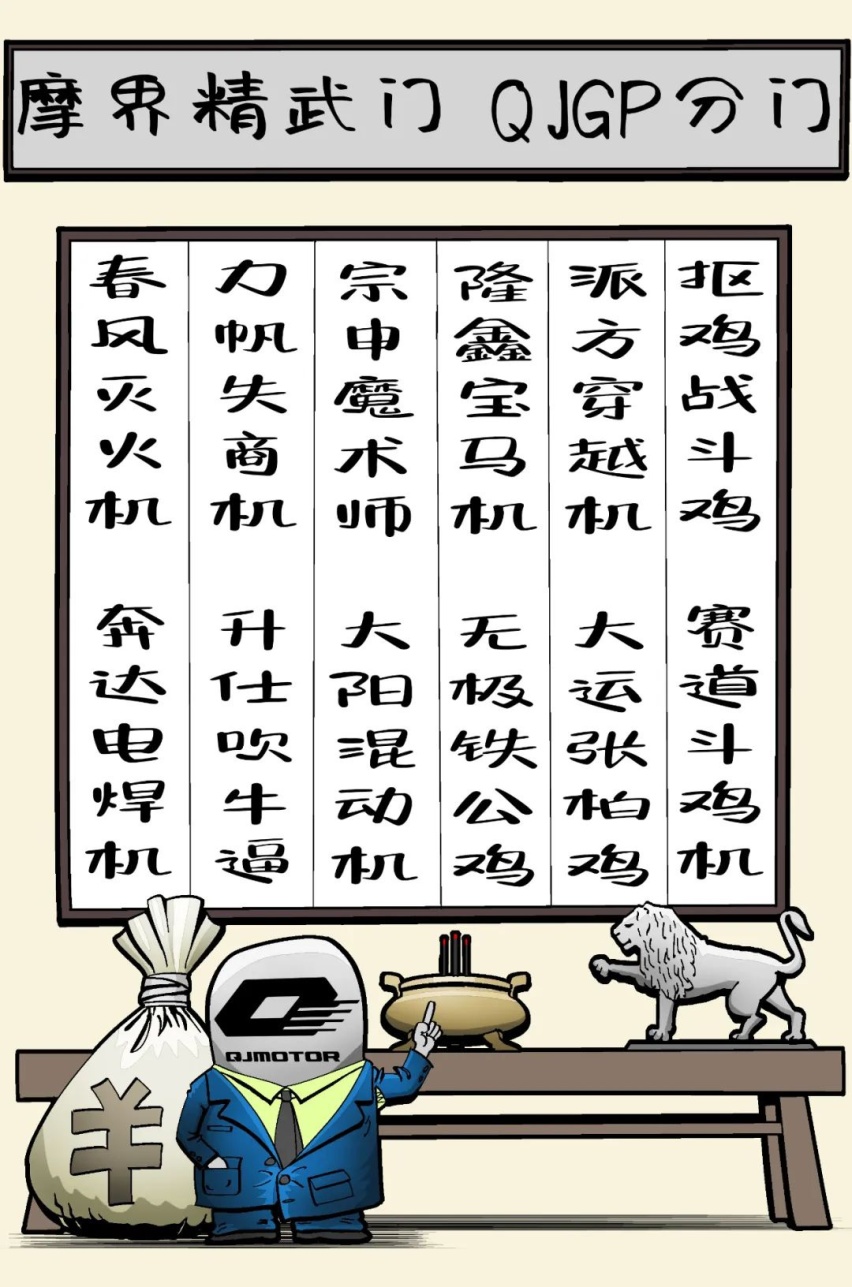 摩界精武门 QJGP分门
春风灭火机 奔达电焊机
力帆失商机 升仕吹牛逼
宗申魔术师 大阳混动机
隆鑫宝马机 无极铁公鸡
派方穿越机 大运张柏鸡
抠鸡战斗鸡 赛道斗鸡机
QJMOTOR
¥